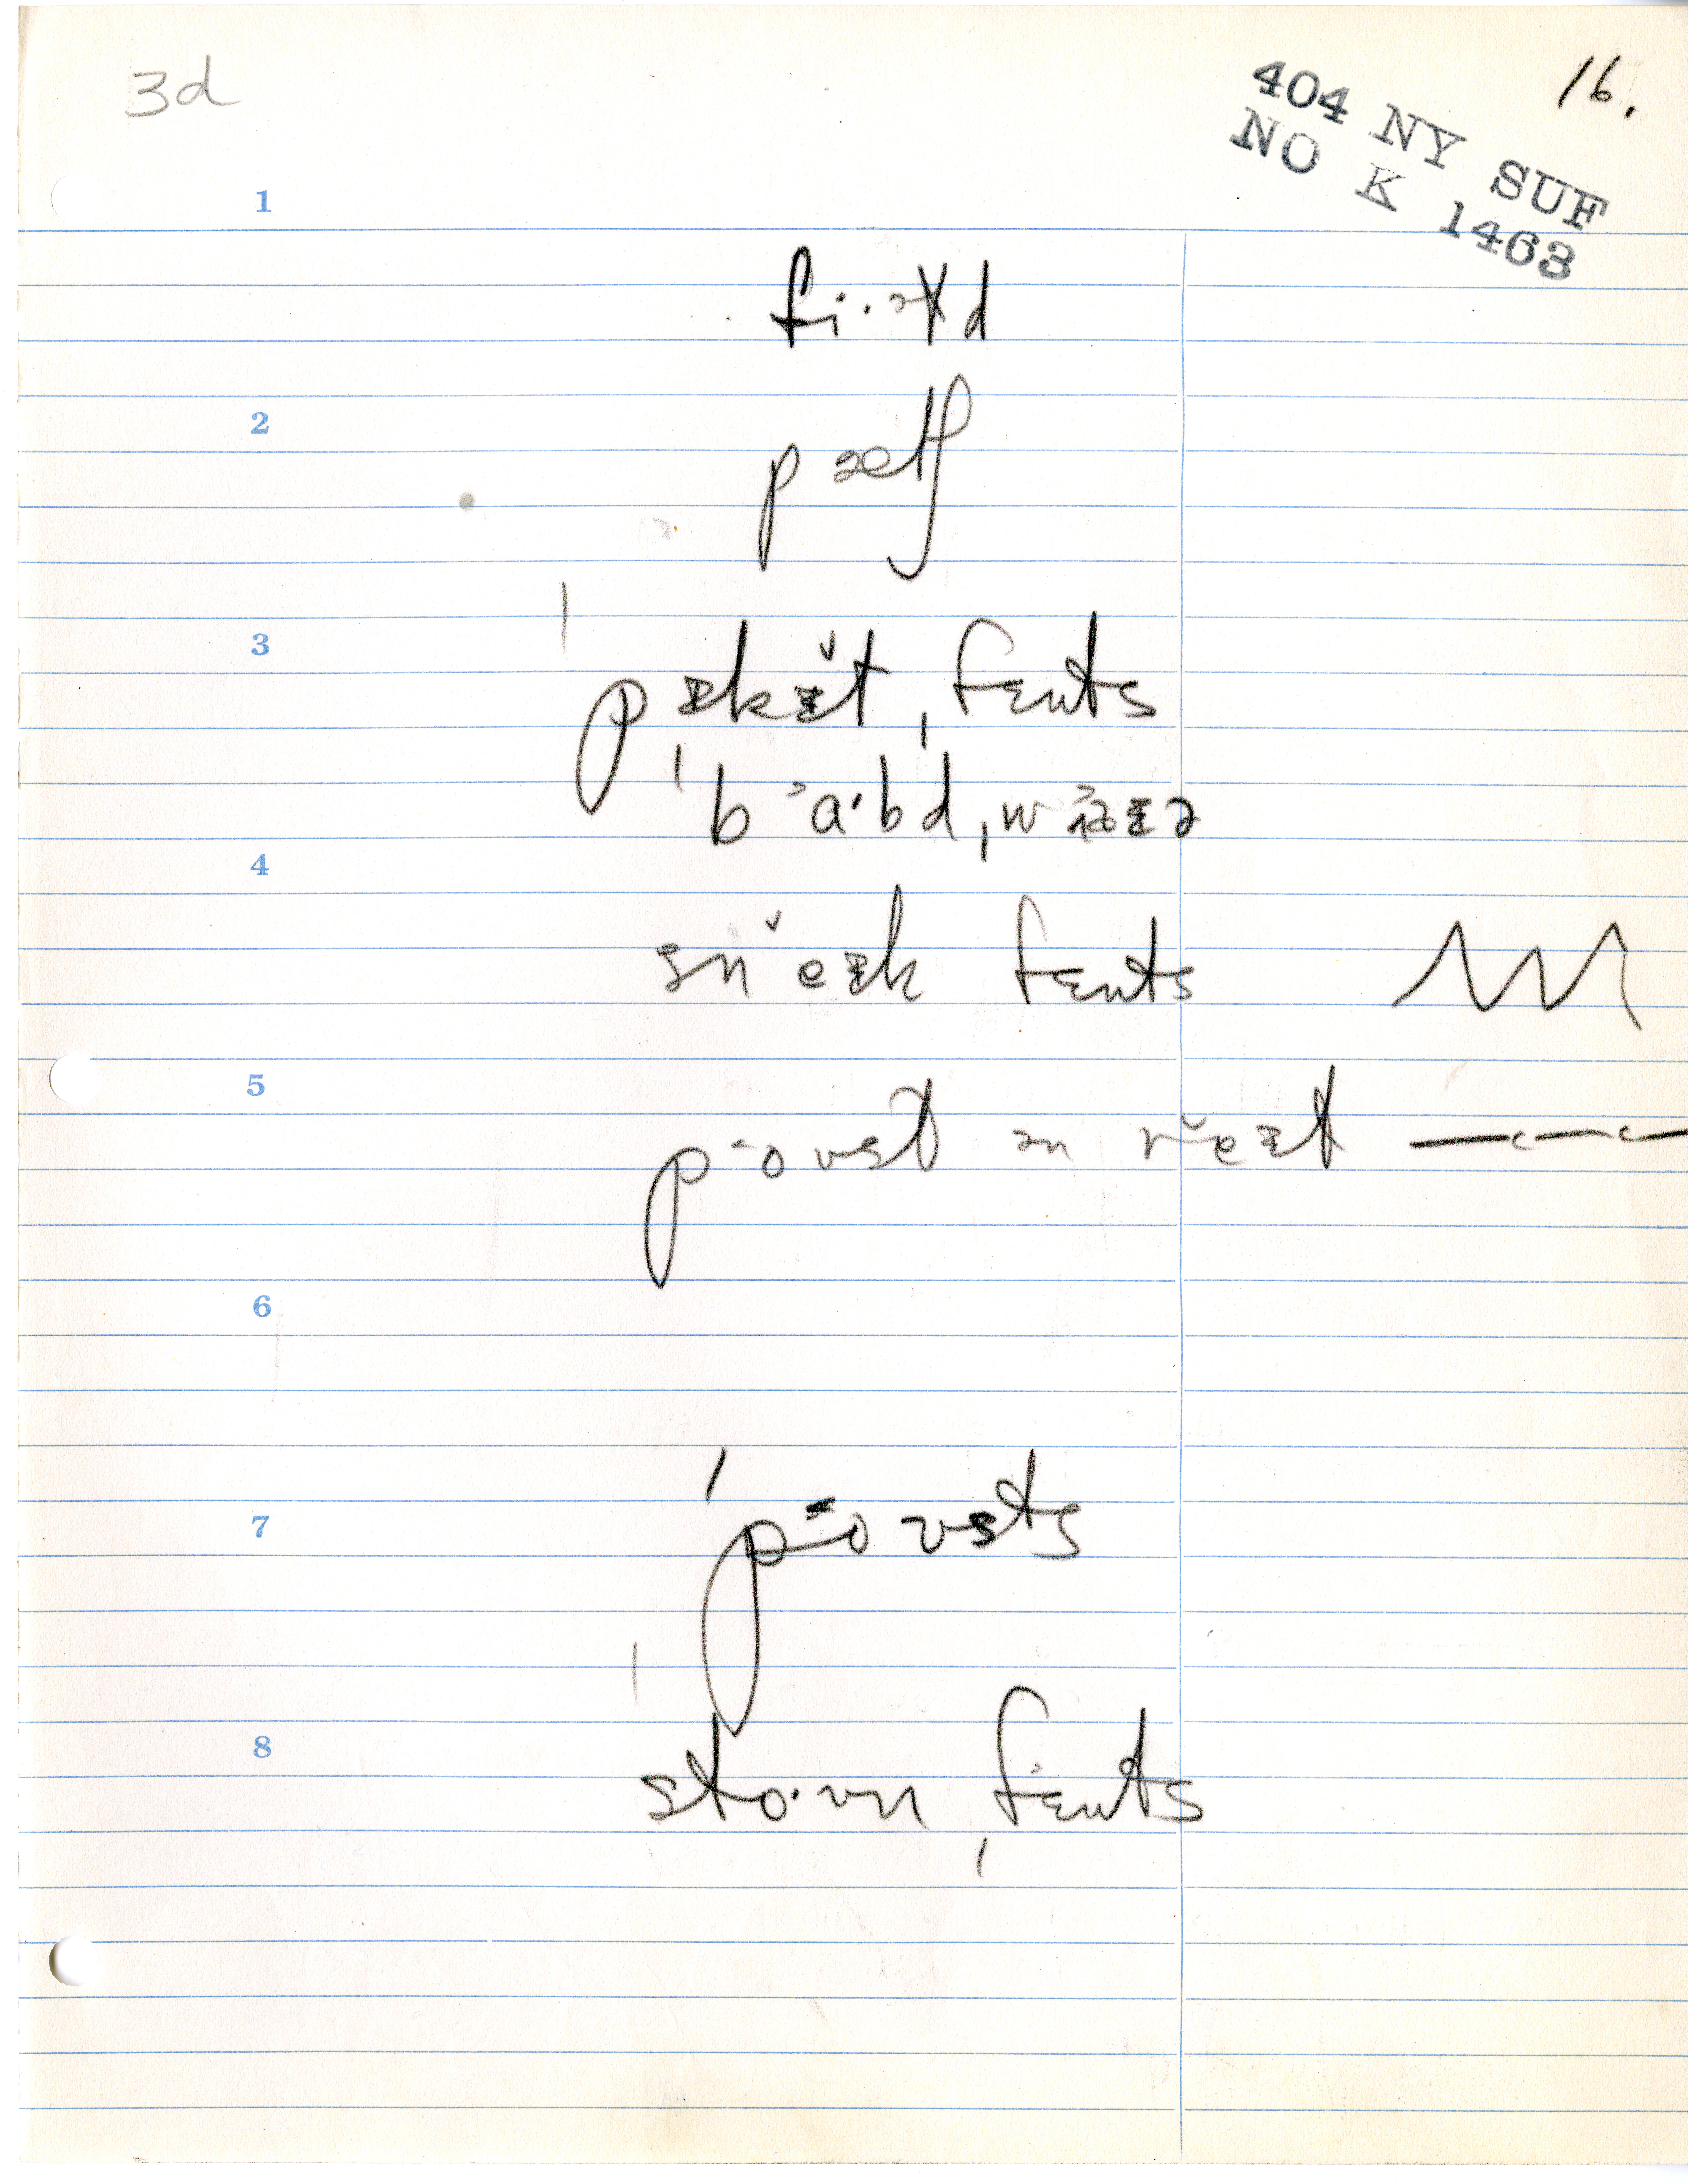 3d
16.
404 NY SUF
NO K 1463
1
fi·əɫd
2
3
ˈpɪkɪ̆t ˌfɛnts
ˈb˃a·bd ˌw
4
snĕɪk fɛnts
5
poʊst ən rĕɪt
6
7
ˈpoʊsts
8
ˈsto·ʊn ˌfɛnts